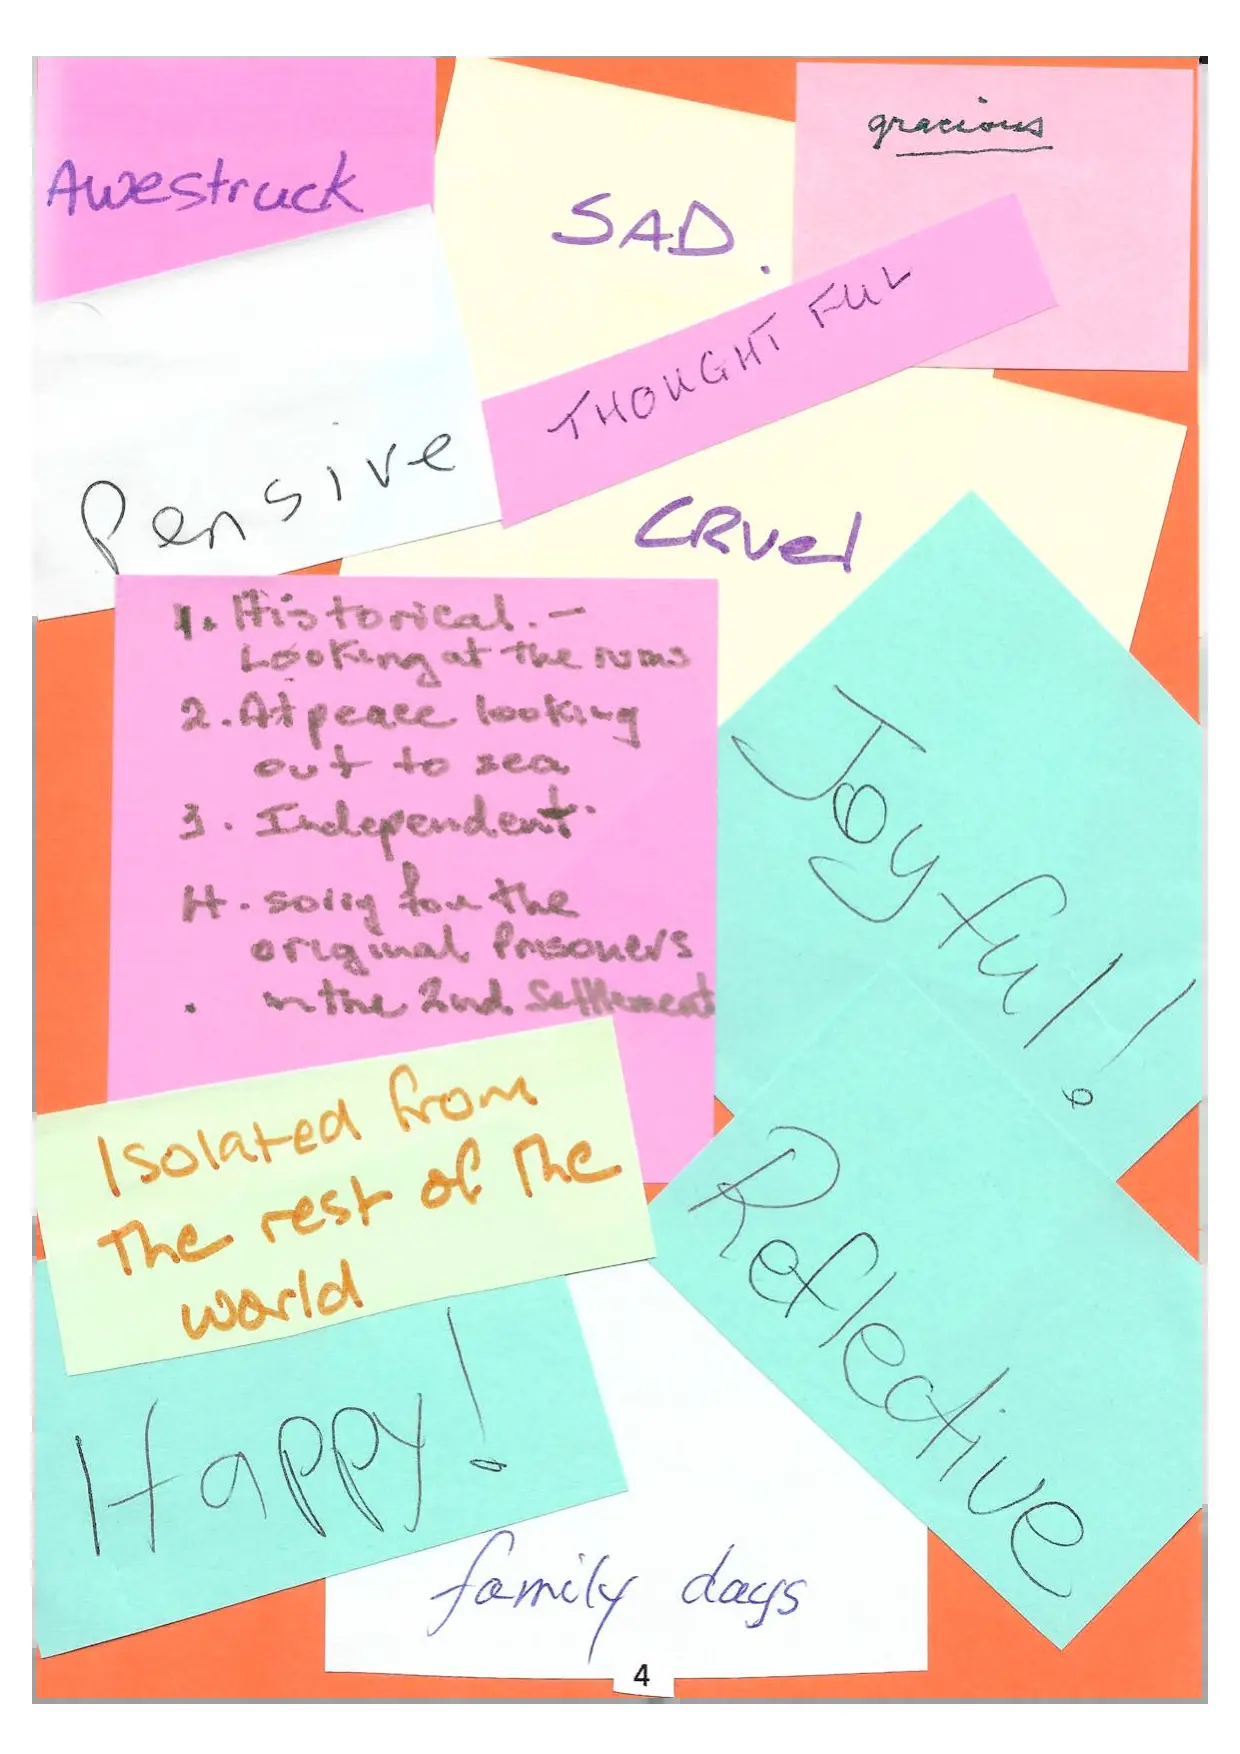 gracious
Awestruck
SAD.
THOUGHTFUL
Pensive
CRuel
1. Historical. –
Looking at the ruins
2. At peace looking
out to sea
3. Independent.
4. sorry for the
original Prisoners
. in the 2nd Settlement
Joyful!
Isolated from
The rest of The
world
Reflective
Happy!
family days
4